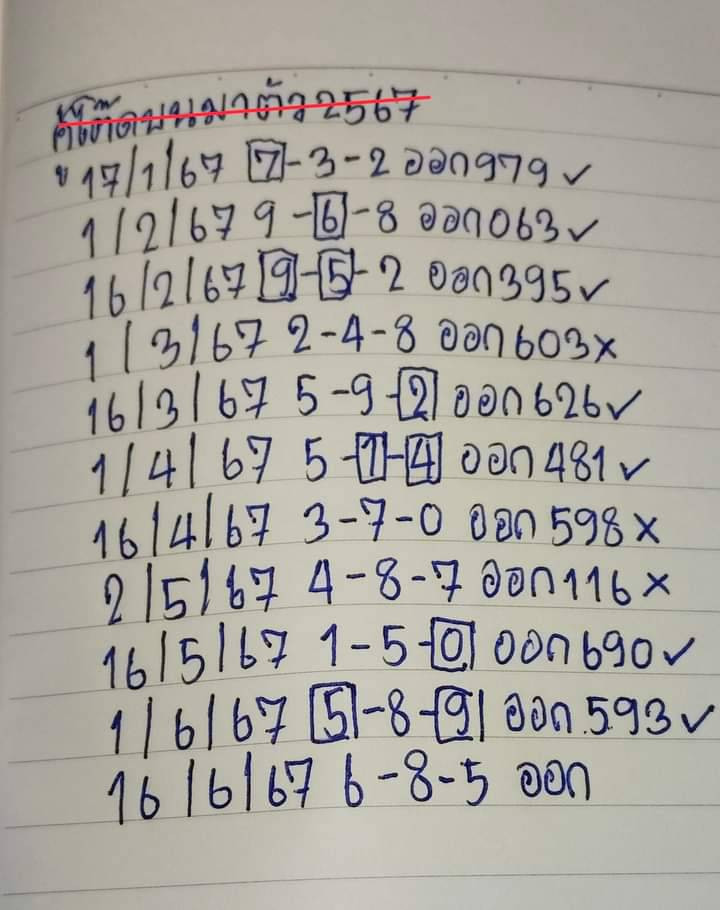 บนมาตัว 2567
17/1/67 7-3-2 ออก979 ✓
1/2/67 9-6-8 ออก063 ✓
16/2/67 9-5-2 ออก395 ✓
1/3/67 2-4-8 ออก603 ×
16/3/67 5-9-2 ออก626 ✓
1/4/67 5-1-4 ออก481 ✓
16/4/67 3-7-0 ออก598 ×
2/5/67 4-8-7 ออก116 ×
16/5/67 1-5-0 ออก690 ✓
1/6/67 5-8-9 ออก.593 ✓
16/6/67 6-8-5 ออก